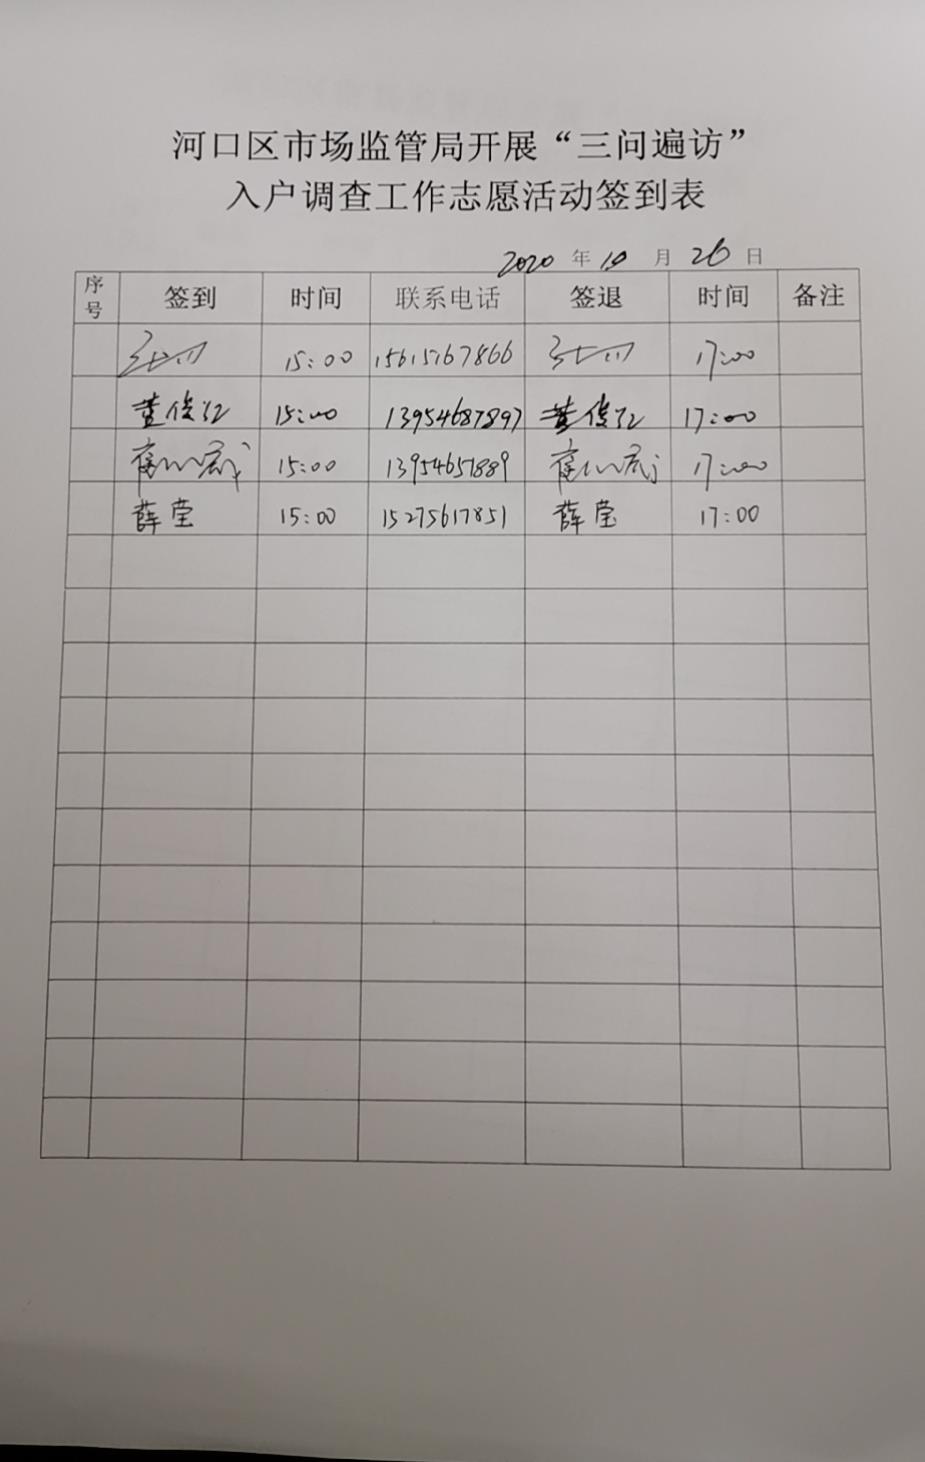 河口区市场监管局开展“三问遍访”
入户调查工作志愿活动签到表
2020 年 10 月 26 日
序号 签到 时间 联系电话 签退 时间 备注
15:00 15615167866 17:00
董俊红 15:00 13954687897 董俊红 17:00
15:00 13954651889 17:00
薛莹 15:00 15275617851 薛莹 17:00